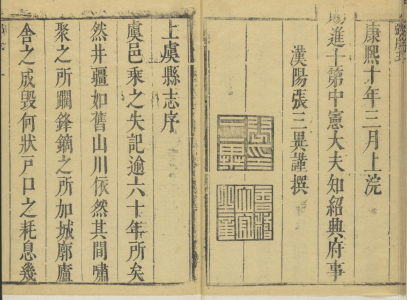 康熙十年三月上浣
賜進士第中憲大夫知紹興府事
漢陽張三異謹撰
上虞縣志序
虞邑乘之失記逾六十年所矣
然井疆如舊山川依然其間嘯
聚之所躪鋒鏑之所加城廓廬
舍之成毀何狀戸口之耗息幾